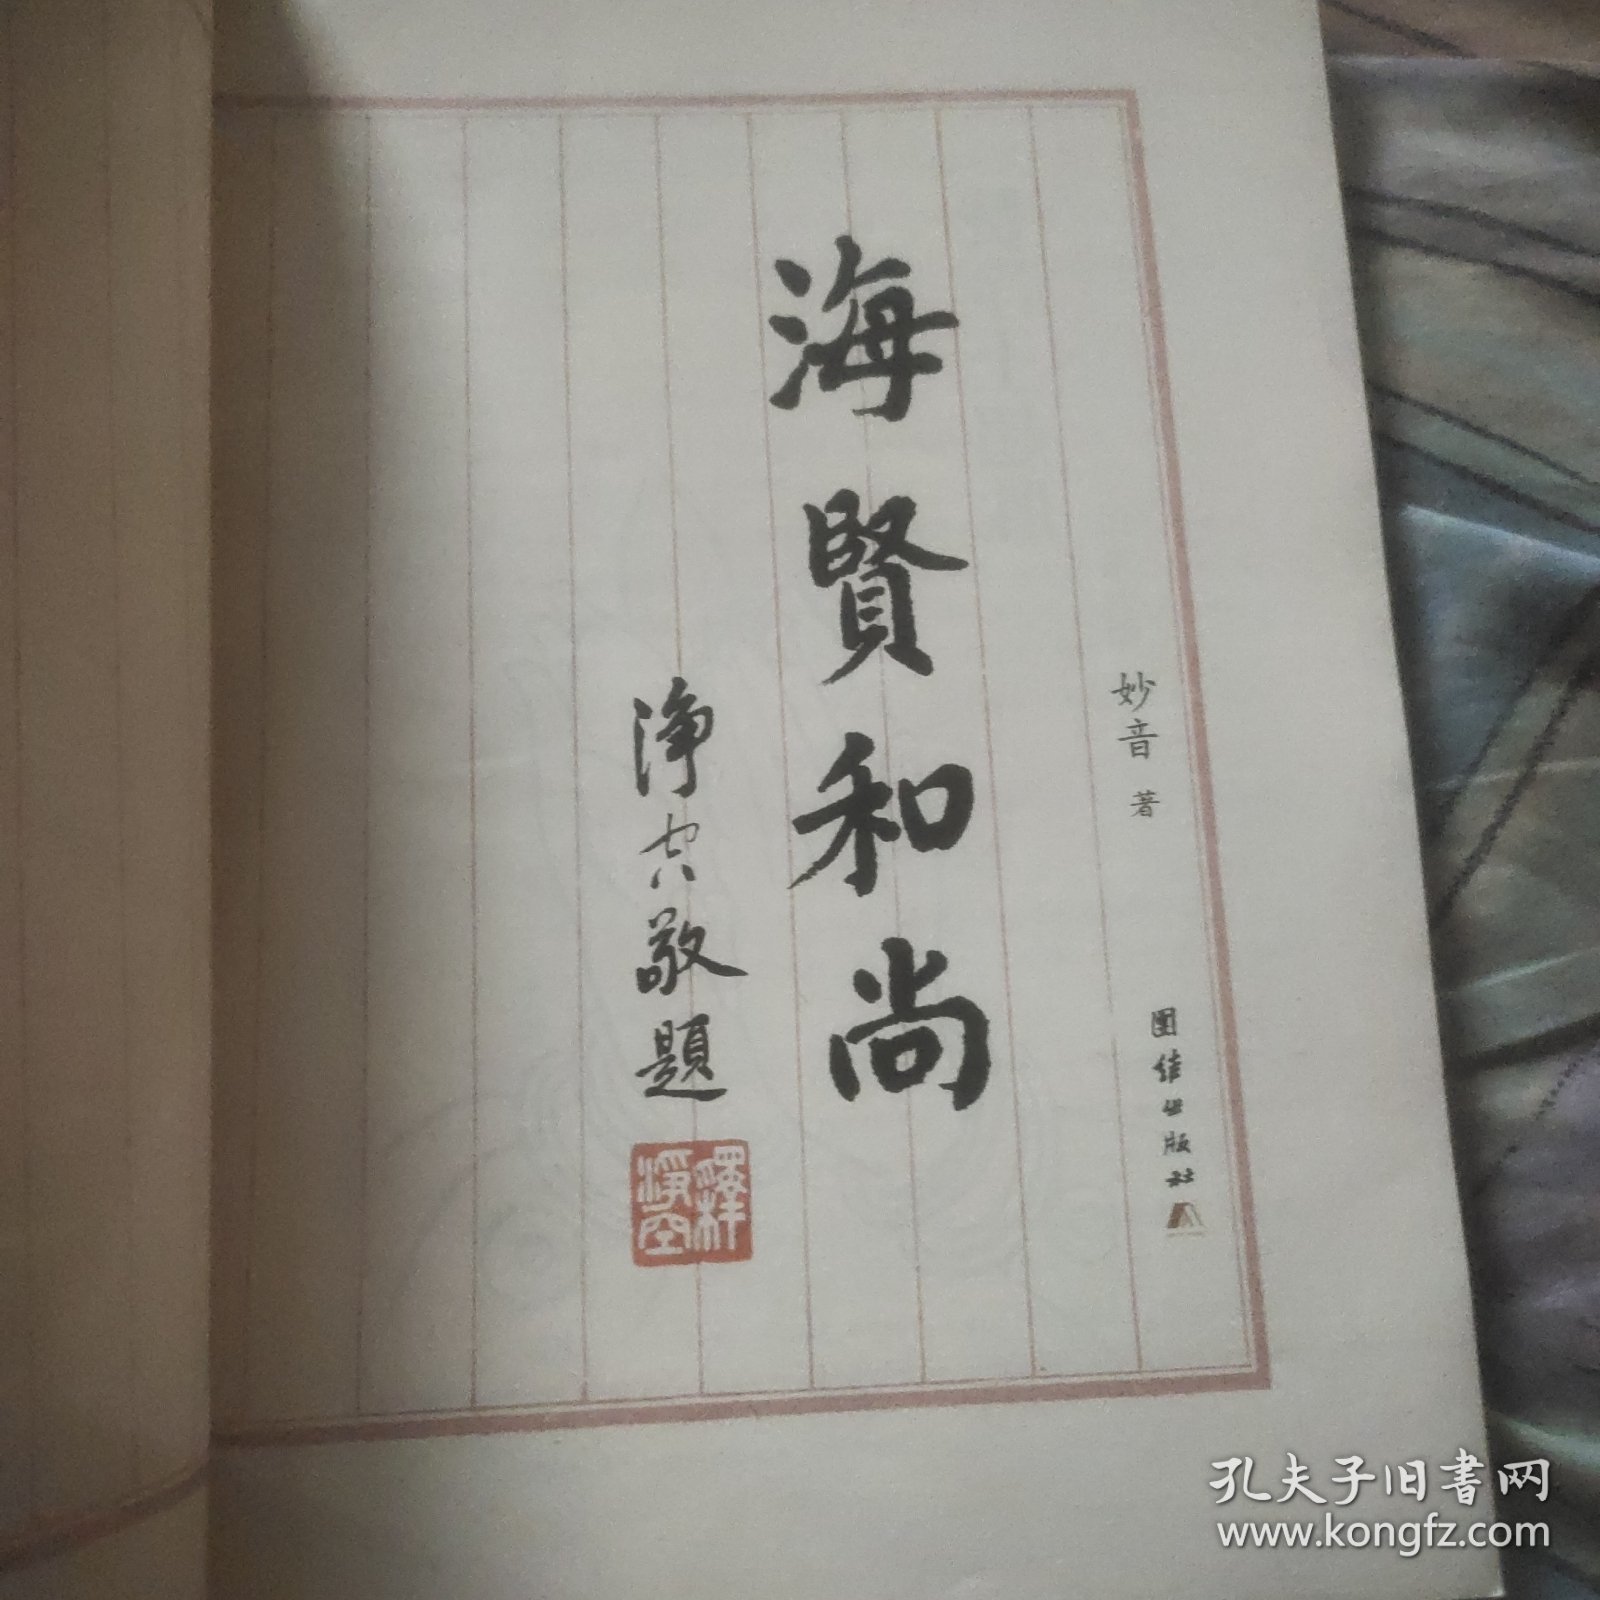 妙音 著
团结出版社
海賢和尚
淨空敬題
釋淨空
孔夫子旧书网
www.kongfz.com